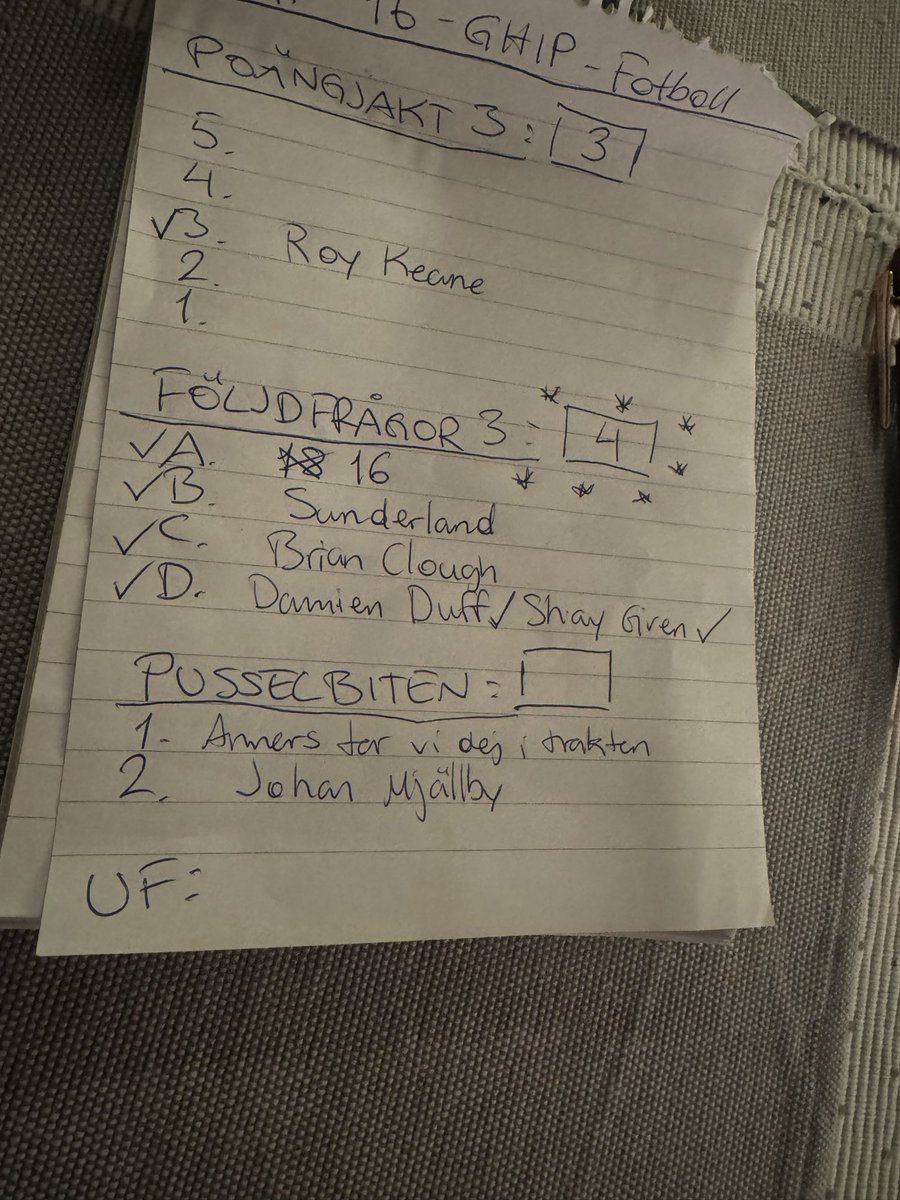 16 - GHIP - Fotboll
POÄNGJAKT 3: 3
5.
4.
√3. Roy Keane
2.
1.
FÖLJDFRÅGOR 3: 4
√A. 16
√B. Sunderland
√C. Brian Clough
√D. Damien Duff√/Shay Given√
PUSSELBITEN:
1. Anners tar vi dej i trakten
2. Johan Mjällby
UF: